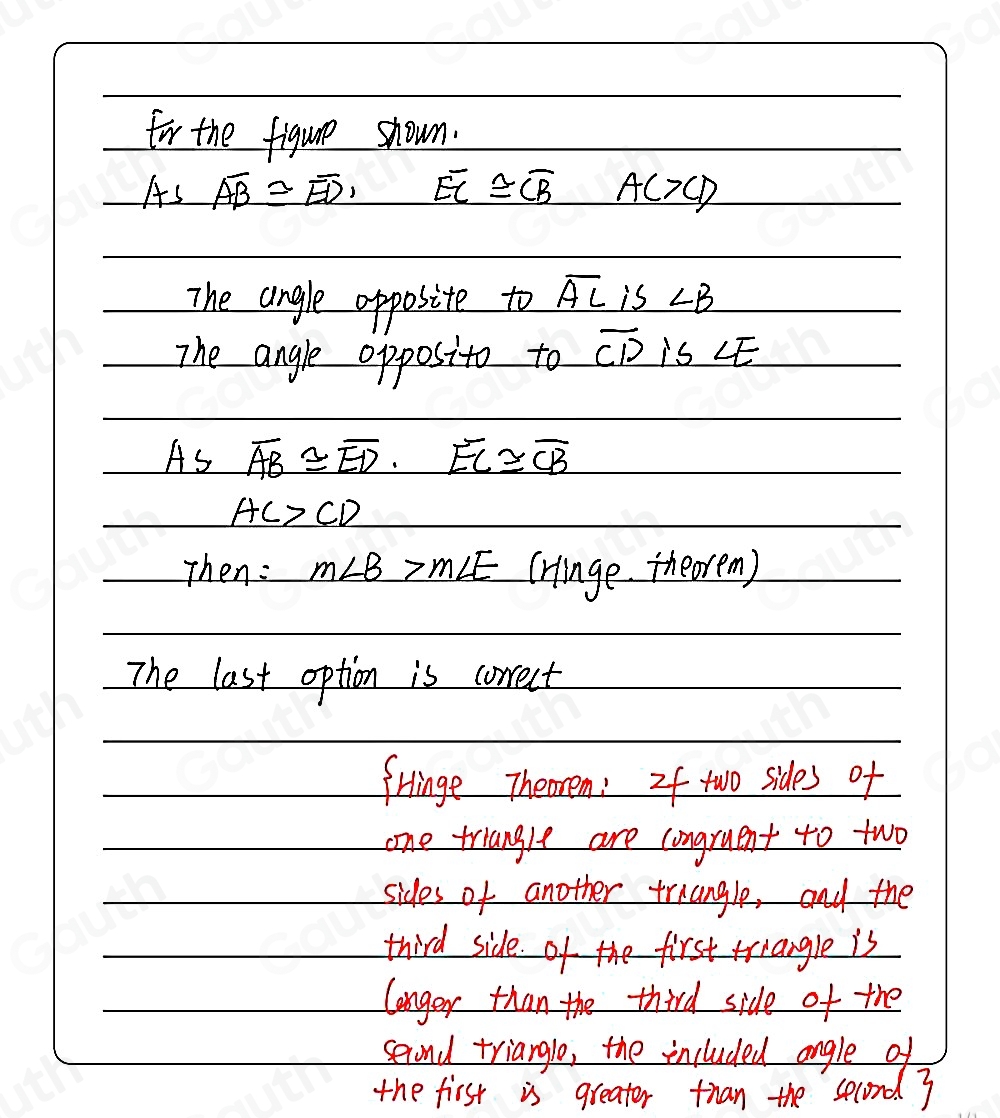 For the figure shown.
As A̅B̅ ≅ E̅D̅, E̅C̅ ≅ C̅B̅ AC>CD
The angle opposite to A̅C̅ is ∠B
The angle opposito to C̅D̅ is ∠E
As A̅B̅ ≅ E̅D̅. E̅C̅ ≅ C̅B̅
AC > CD
Then: m∠B > m∠E (Hinge. theorem)
The last option is correct
{Hinge Theorem: If two sides of
one triangle are congruent to two
sides of another triangle, and the
third side. of the first triangle is
longer than the third side of the
second triangle, the included angle of
the first is greater than the second}